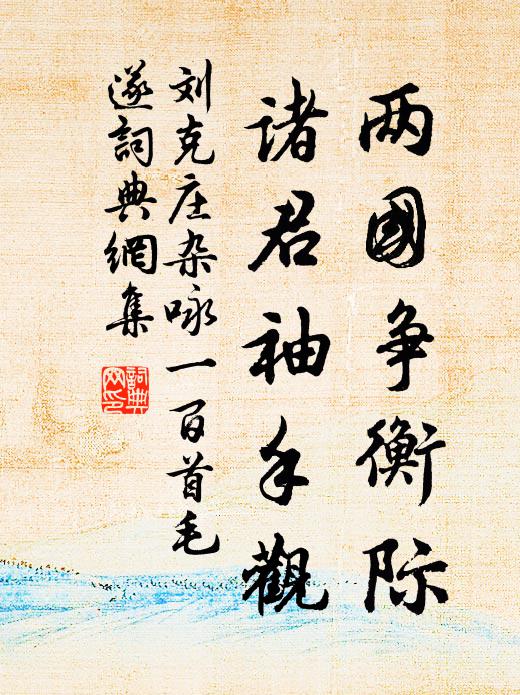 两國争衡际
诸君袖手觀
刘克庄杂咏一百首毛
遂詞典網集
詞典
网印